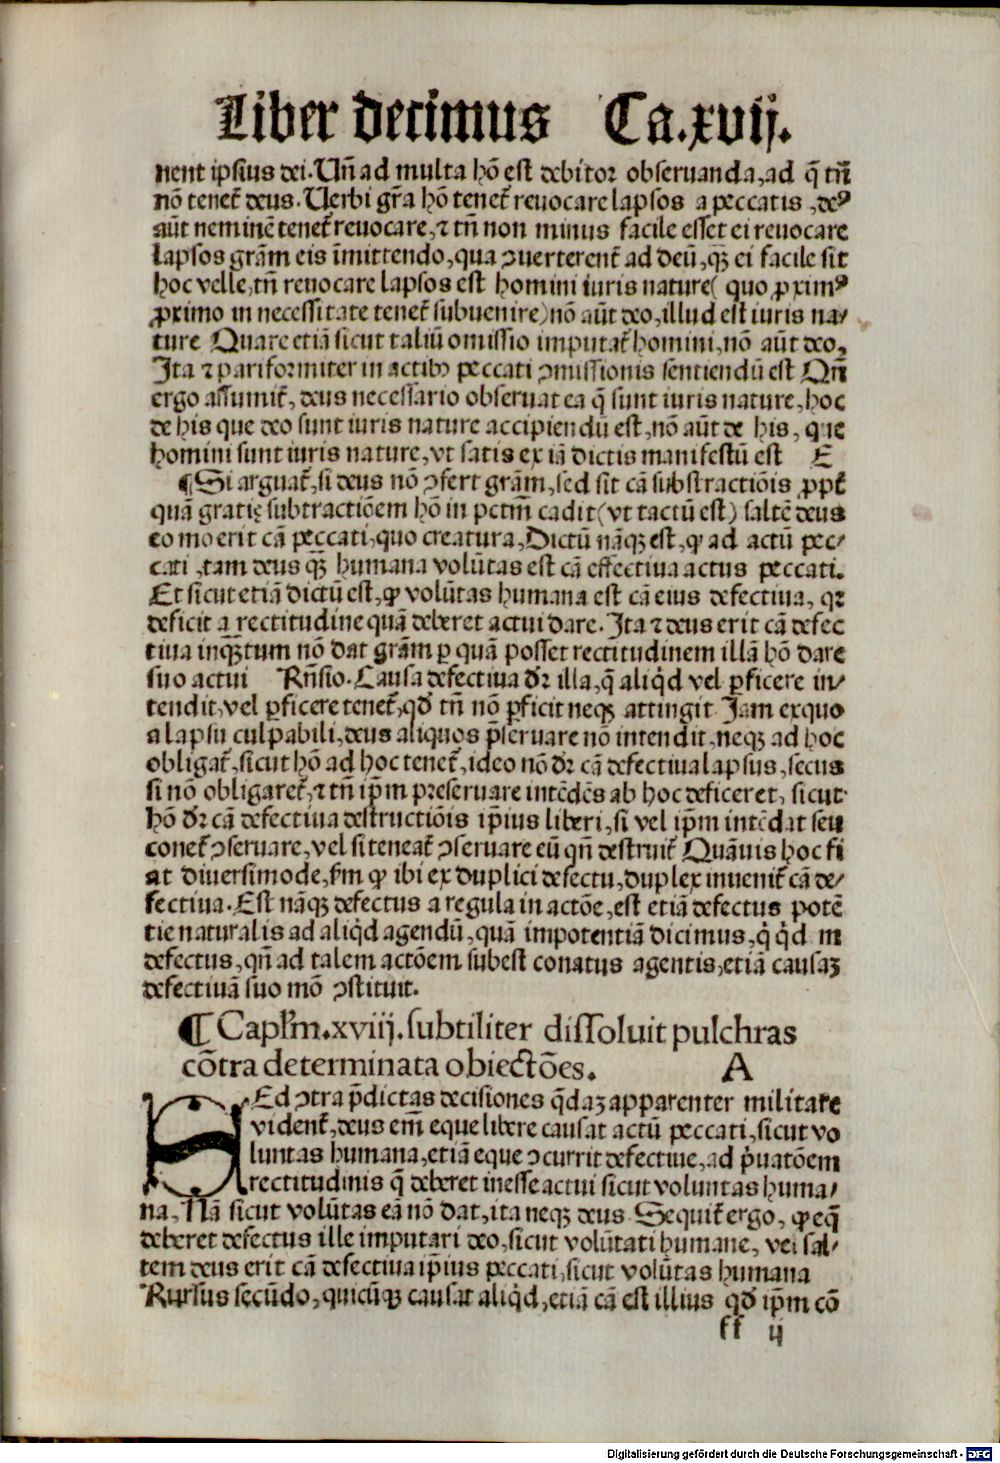 Liber decimus Ca.xvij.
nent ipsius dei. Un̄ ad multa hō est debitor obseruanda, ad q̄ tn̄
nō tenet᷑ deus. Uerbi gr̄a hō tenet᷑ reuocare lapsos a peccatis, deꝰ
aūt neminē tenet᷑ reuocare, ⁊ tn̄ non minus facile esset ei reuocare
lapsos grām eis īmittendo, qua ꝯuerterent᷑ ad deū, qꝫ̄ ei facile sit
hoc velle, tn̄ reuocare lapsos est homini iuris nature( quo ꝓximꝰ
ꝓximo in necessitate tenet᷑ subuenire) nō aūt deo, illud est iuris na⸗
ture Quare etiā sicut taliū omissio imputat᷑ homini, nō aūt deo,
Ita ⁊ pariformiter in actibꝰ peccati ꝯmissionis sentiendū est Qn̄
ergo assumit᷑, deus necessario obseruat ea q̄ sunt iuris nature, hoc
de his que deo sunt iuris nature accipiendū est, nō aūt de his, que
homini sunt iuris nature, vt satis ex iā dictis manifestū est E
¶ Si arguat᷑, si deus nō ꝯfert grām, sed sit cā substractiōis ꝓpt᷑
quā gratię subtractiōem hō in pctm̄ cadit( vt tactū est) saltē deus
eo mo erit cā peccati, quo creatura, Dictū nāqꝫ est, ꝙ ad actū pec⸗
cati, tam deus qꝫ̄ humana volūtas est cā effectiua actus peccati.
Et sicut etiā dictū est, ꝙ volūtas humana est cā eius defectiua, qꝛ
deficit a rectitudine quā deberet actui dare. Ita ⁊ deus erit cā defec
tiua inqꝫ̄tum nō dat grām ꝑ quā posset rectitudinem illā hō dare
suo actui Rn̄sio. Causa defectiua dr̄ illa, q̄ aliqͥd vel ꝑficere in⸗
tendit, vel ꝑficere tenet᷑, qd̄ tn̄ nō ꝑficit neqꝫ attingit Iam exquo
a lapsu culpabili, deus aliquos p̄seruare nō intendit, neqꝫ ad hoc
obligat᷑, sicut hō ad hoc tenet᷑, ideo nō dr̄ cā defectiua lapsus, secus
si nō obligaret᷑, ⁊ tn̄ ip̄m preseruare intēdēs ab hoc deficeret, sicut
hō dr̄ cā defectiua destructiōis ip̄ius liberi, si vel ip̄m intēdat seu
conet᷑ ꝯseruare, vel si teneat᷑ ꝯseruare eū qn̄ destruit᷑ Quāuis hoc fi
at diuersimode, fm̄ ꝙ ibi ex duplici defectu, duplex inuenit᷑ cā de⸗
fectiua. Est nāqꝫ defectus a regula in actōe, est etiā defectus potē
tie naturalis ad aliqͥd agendū, quā impotentiā dicimus, qͥ qͥd m
defectus, qn̄ ad talem actōem subest conatus agentis, etiā causaꝫ
defectiuā suo mō ꝯstituit.
¶ Caplm̄.xviij. subtiliter dissoluit pulchras
cōtra determinata obiectōes. A
SEd ꝯtra p̄dictas decisiones q̄daꝫ apparenter militare
vident᷑, deus em̄ eque libere causat actū peccati, sicut vo
luntas humana, etiā eque ꝯcurrit defectiue, ad pͥuatōem
rectitudinis q̄ deberet inesse actui sicut voluntas huma⸗
na, Nā sicut volūtas eā nō dat, ita neqꝫ deus Sequit᷑ ergo, ꝙ eq̄
deberet defectus ille imputari deo, sicut volūtati humane, vel sal⸗
tem deus erit cā defectiua ip̄ius peccati, sicut volūtas humana
Rursus secūdo, quicūqꝫ causat aliqͥd, etiā cā est illius qd̄ ip̄m cō
ff ij
Digitalisierung gefördert durch die Deutsche Forschungsgemeinschaft - DFG